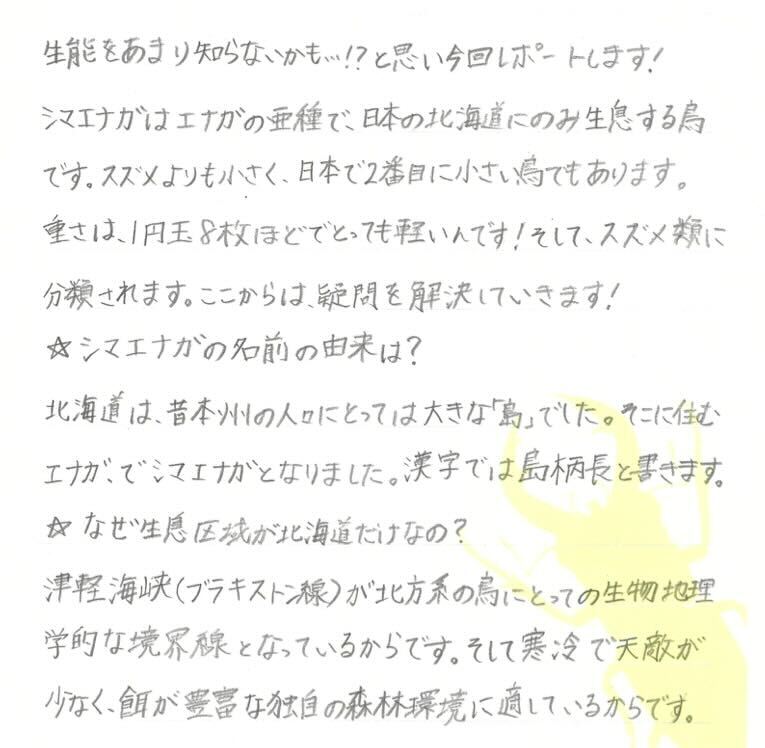 生能をあまり知らないかも…!?と思い今回レポートします!
シマエナガはエナガの亜種で、日本の北海道にのみ生息する鳥
です。スズメよりも小さく、日本で2番目に小さい鳥でもあります。
重さは、1円玉8枚ほどでとっても軽いんです!そして、スズメ類に
分類されます。ここからは、疑問を解決していきます!
☆シマエナガの名前の由来は?
北海道は、昔本州の人々にとっては大きな「島」でした。そこに住む
エナガ、でシマエナガとなりました。漢字では島柄長と書きます。
☆なぜ生息区域が北海道だけなの?
津軽海峡(ブラキストン線)が北方系の鳥にとっての生物地理
学的な境界線となっているからです。そして寒冷で天敵が
少なく、餌が豊富な独自の森林環境に適しているからです。